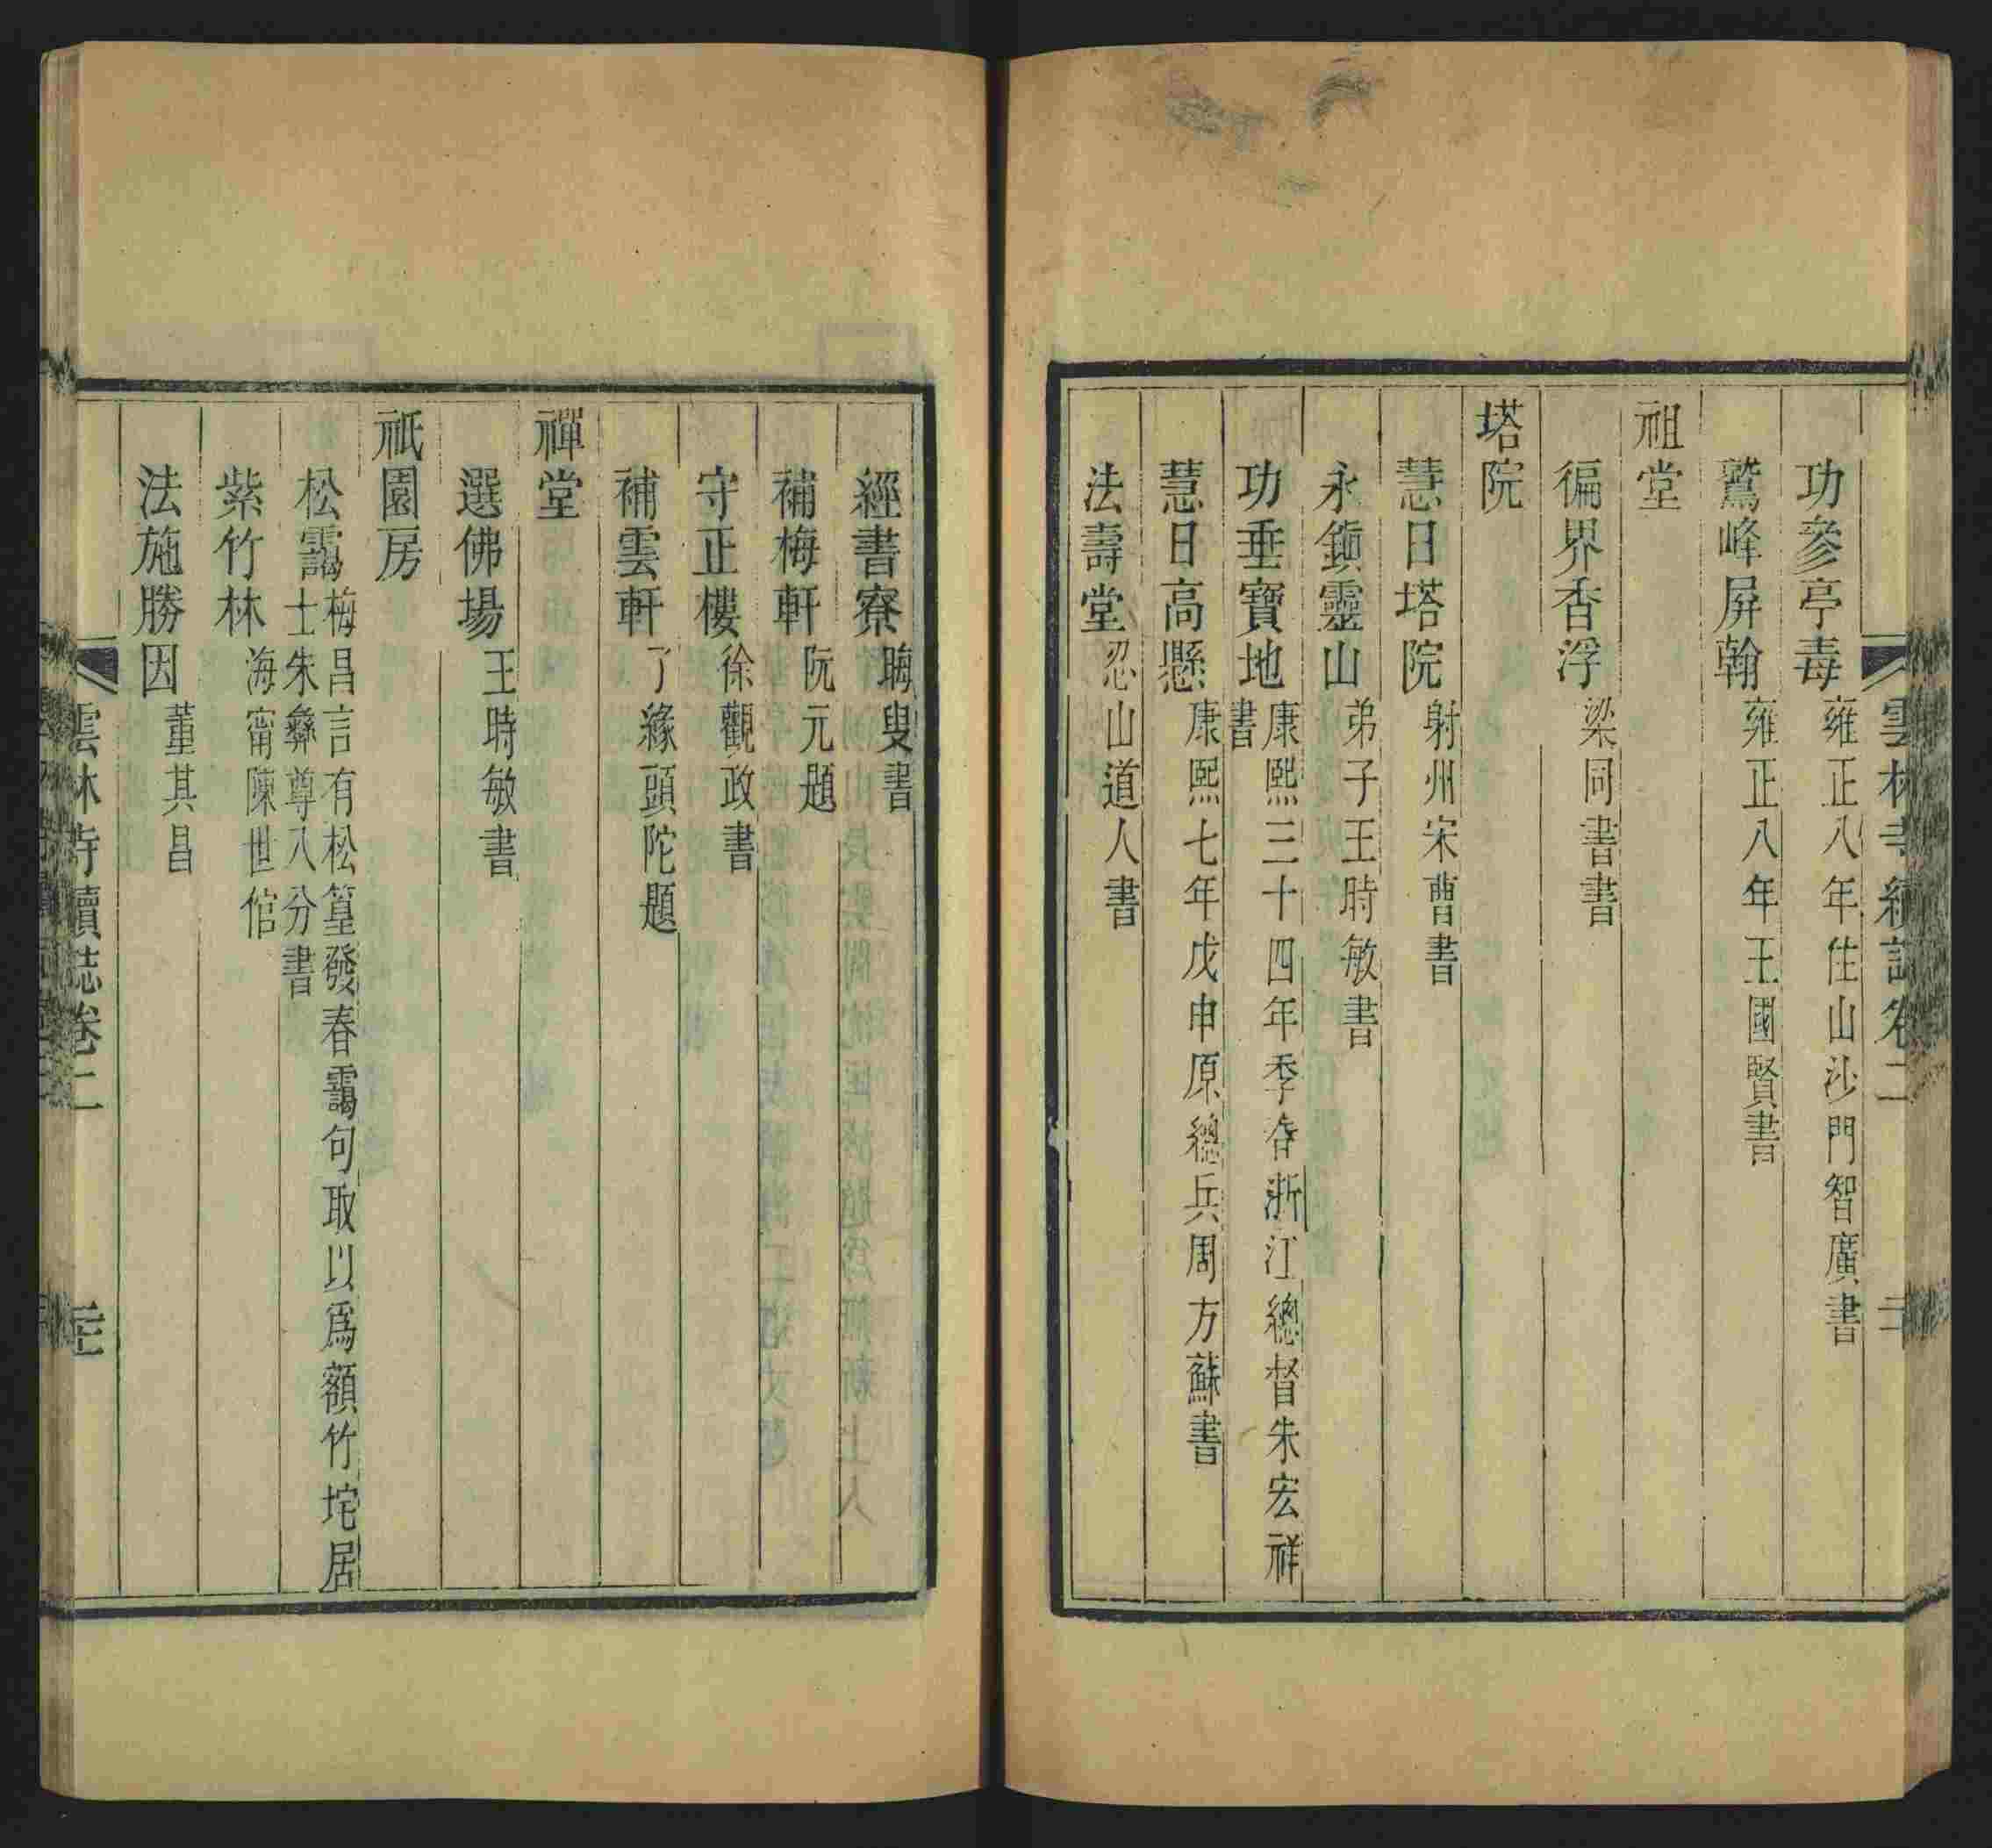 雲林寺續誌卷二
功參亭毒雍正八年住山沙門智廣書
鷲峰屏翰雍正八年王國賢書
祖堂
徧界香浮梁同書書
塔院
慧日塔院射州宋曹書
永鎮靈山弟子王時敏書
功垂寶地康熙三十四年季春浙江總督朱宏祥
書
慧日高懸康熙七年戊申原總兵周方蘇書
法壽堂忍山道人書
經書寮晦叟書
補梅軒阮元題
守正樓徐觀政書
補雲軒了緣頭陀題
禪堂
選佛場王時敏書
祇園房
松靄梅昌言有松篁發春靄句取以爲額竹垞居
士朱彝尊八分書
紫竹林海甯陳世倌
法施勝因董其昌
雲林寺續誌卷二